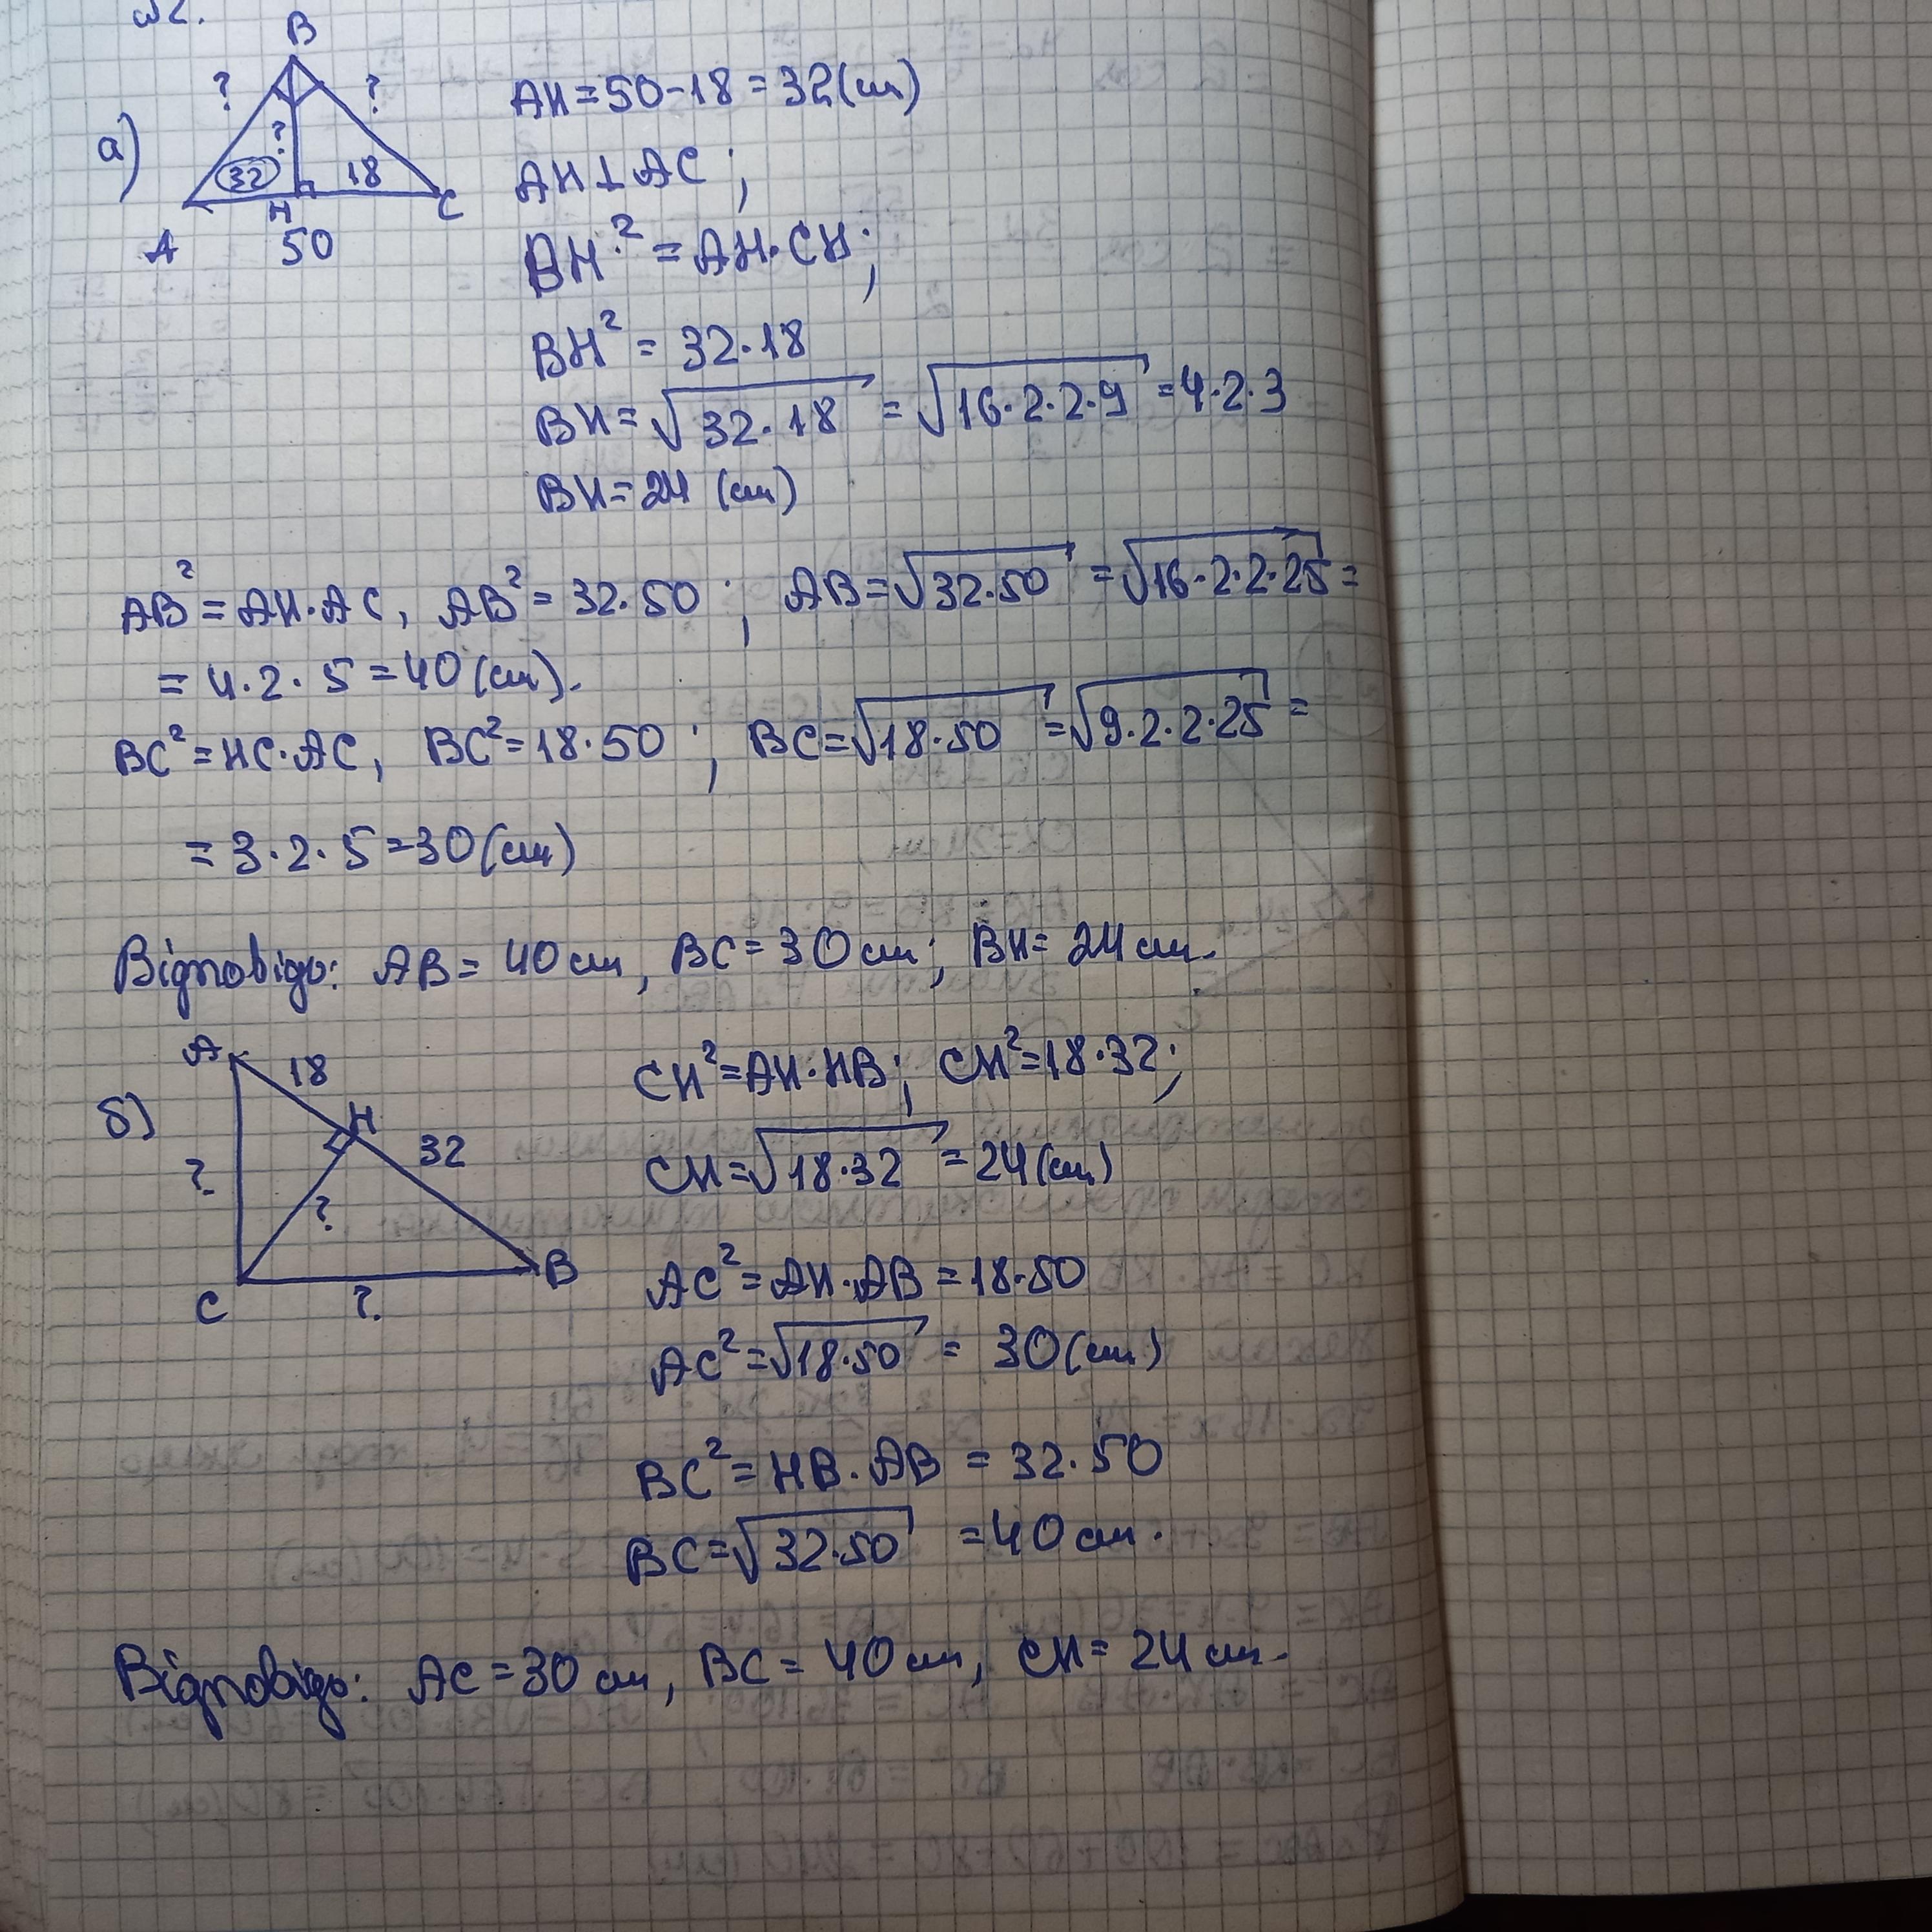 №2.
B
? ?
а)
?
32 18
A H C
50
AH = 50 - 18 = 32 (см)
AH ⊥ AC ;
BH² = AH · CH ;
BH² = 32 · 18
BH = √32 · 18 = √16 · 2 · 2 · 9 = 4 · 2 · 3
BH = 24 (см)
AB² = AH · AC, AB² = 32 · 50 ; AB = √32 · 50 = √16 · 2 · 2 · 25 =
= 4 · 2 · 5 = 40 (см).
BC² = HC · AC, BC² = 18 · 50 ; BC = √18 · 50 = √9 · 2 · 2 · 25 =
= 3 · 2 · 5 = 30 (см)
Відповідь: AB = 40 см, BC = 30 см; BH = 24 см.
б)
A 18
H
32
?
?
C ? B
CH² = AH · HB ; CH² = 18 · 32 ;
CH = √18 · 32 = 24 (см)
AC² = AH · AB = 18 · 50
AC² = √18 · 50 = 30 (см)
BC² = HB · AB = 32 · 50
BC = √32 · 50 = 40 см.
Відповідь: AC = 30 см, BC = 40 см, CH = 24 см.